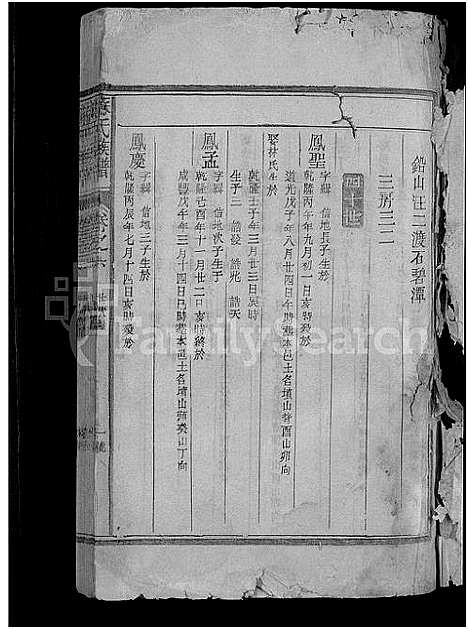 鉛山汪二渡石碧潭
三房三二
四十世
鳳聖
字輝 信地長子生於
乾隆丙午年九月初一日亥時歿於
道光戊子年八月廿四日午時塟本邑土名墳山背酉山卯向
娶林氏生於
乾隆壬子年三月廿三日辰時
生子三 誥發 誥光 誥天
鳳孟
字輯 信地次子生于
乾隆己酉年十一月廿二日亥時終於
咸豐戊午年三月十四日巳時塟本邑土名墳山卯癸山丁向
鳳慶
字 信地三子生於
乾隆丙辰年七月十四日亥時歿於
氏族譜
卷之六
FamilySearch